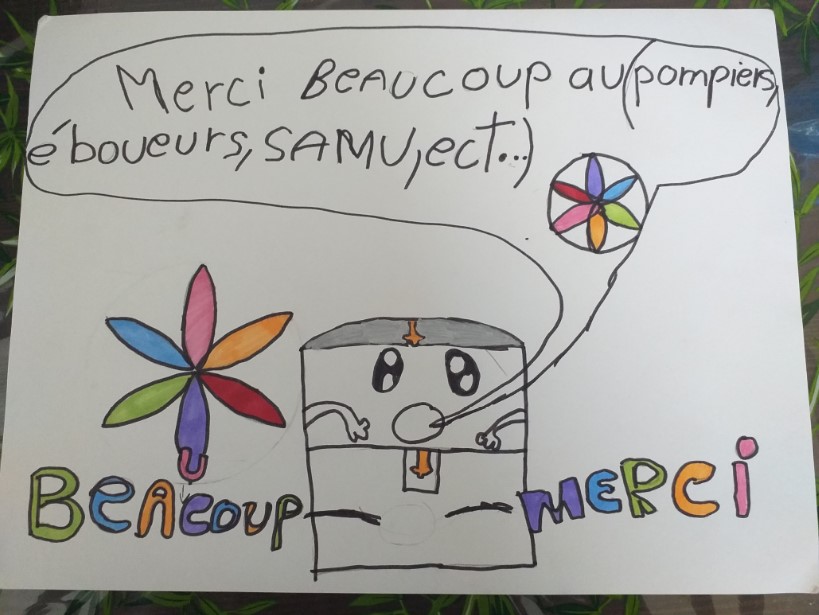 Merci BEAUCOUP au(pompiers,
éboueurs, SAMU, ect...)
BEACOUP MERCI